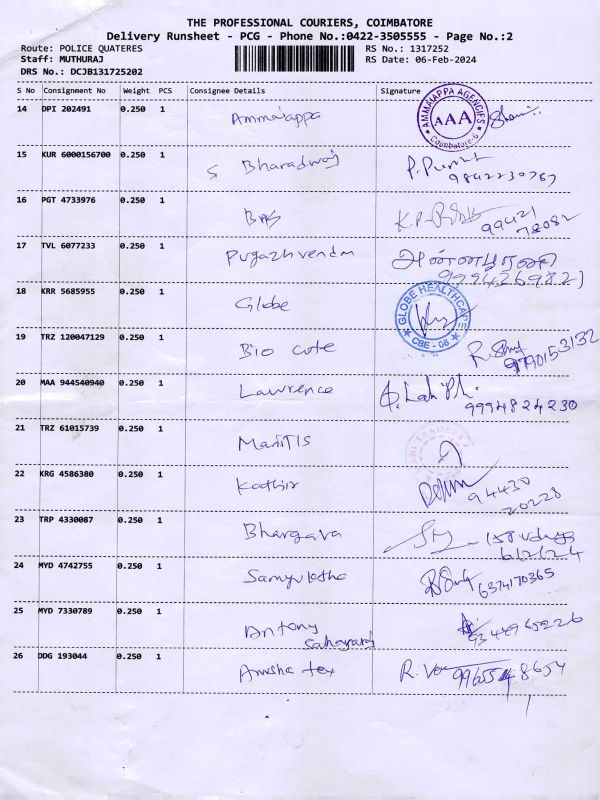 THE PROFESSIONAL COURIERS, COIMBATORE
Delivery Runsheet - PCG - Phone No.:0422-3505555 - Page No.:2
Route: POLICE QUATERES RS No.: 1317252
Staff: MUTHURAJ RS Date: 06-Feb-2024
DRS No.: DCJB131725202
S No Consignment No Weight PCS Consignee Details Signature
14 DPI 202491 0.250 1 Ammaiappa
AMMAIAPPA AGENCIES
AAA
Coimbatore-6
15 KUR 6000156700 0.250 1 S Bharadwaj
9842230767
16 PGT 4733976 0.250 1
99421
78082
17 TVL 6077233 0.250 1 Pugazhvendan
9994269821
18 KRR 5685955 0.250 1 Globe
GLOBE HEALTHCARE
CBE - 06
19 TRZ 120047129 0.250 1 Bio cute
9790153132
20 MAA 944540940 0.250 1 Lawrence
9994824230
21 TRZ 61015739 0.250 1
22 KRG 4586380 0.250 1 Kathir
94430
20228
23 TRP 4330087 0.250 1 Bhargava
6/2/24
24 MYD 4742755 0.250 1 Samyuktha
6374170365
25 MYD 7330789 0.250 1 Antony
Sahayaraj
9344965226
26 DDG 193044 0.250 1 Anusha tex